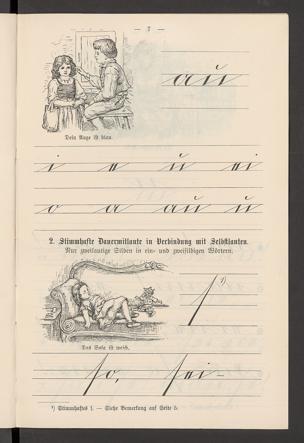 — 7 —
au
Dein Auge ist blau.
i e u ei
o a au u
2. Stimmhafte Dauermitlaute in Verbindung mit Selbstlauten.
Nur zweilautige Silben in ein- und zweisilbigen Wörtern.
ſ ¹)
Das Sofa ist weich.
ſo, ſei-
¹) Stimmhaftes ſ. — Siehe Bemerkung auf Seite 5.